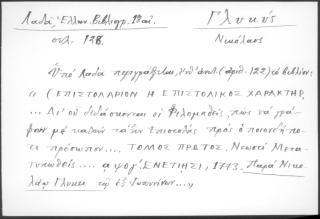 Λαδᾶ, Ἑλλην. Βιβλιογρ. 18 αἰ.
Γλυκύς
σελ. 128.
Νικόλαος
Ὑπὸ Λαδᾶ περιγράφεται, (ἀριθ. 122) τὸ βιβλίον:
« (ΕΠΙΣΤΟΛΑΡΙΟΝ Η ΕΠΙΣΤΟΛΙΚΟΣ ΧΑΡΑΚΤΗΡ,
... Δι' οὗ διδάσκονται οἱ Φιλομαθεῖς, πῶς νὰ γρά-
φουν μὲ τάξιν Ἐπιστολὰς πρὸς ὁποιονδήπο-
τε πρόσωπον... ΤΟΜΟΣ ΠΡΩΤΟΣ, Νεωστὶ Μετα-
τυπωθεὶς .... ΕΝΕΤΙΗΣΙ, 1773. Παρὰ Νικο-
λάῳ Γλυκεῖ τῷ ἐξ Ἰωαννίνων...»